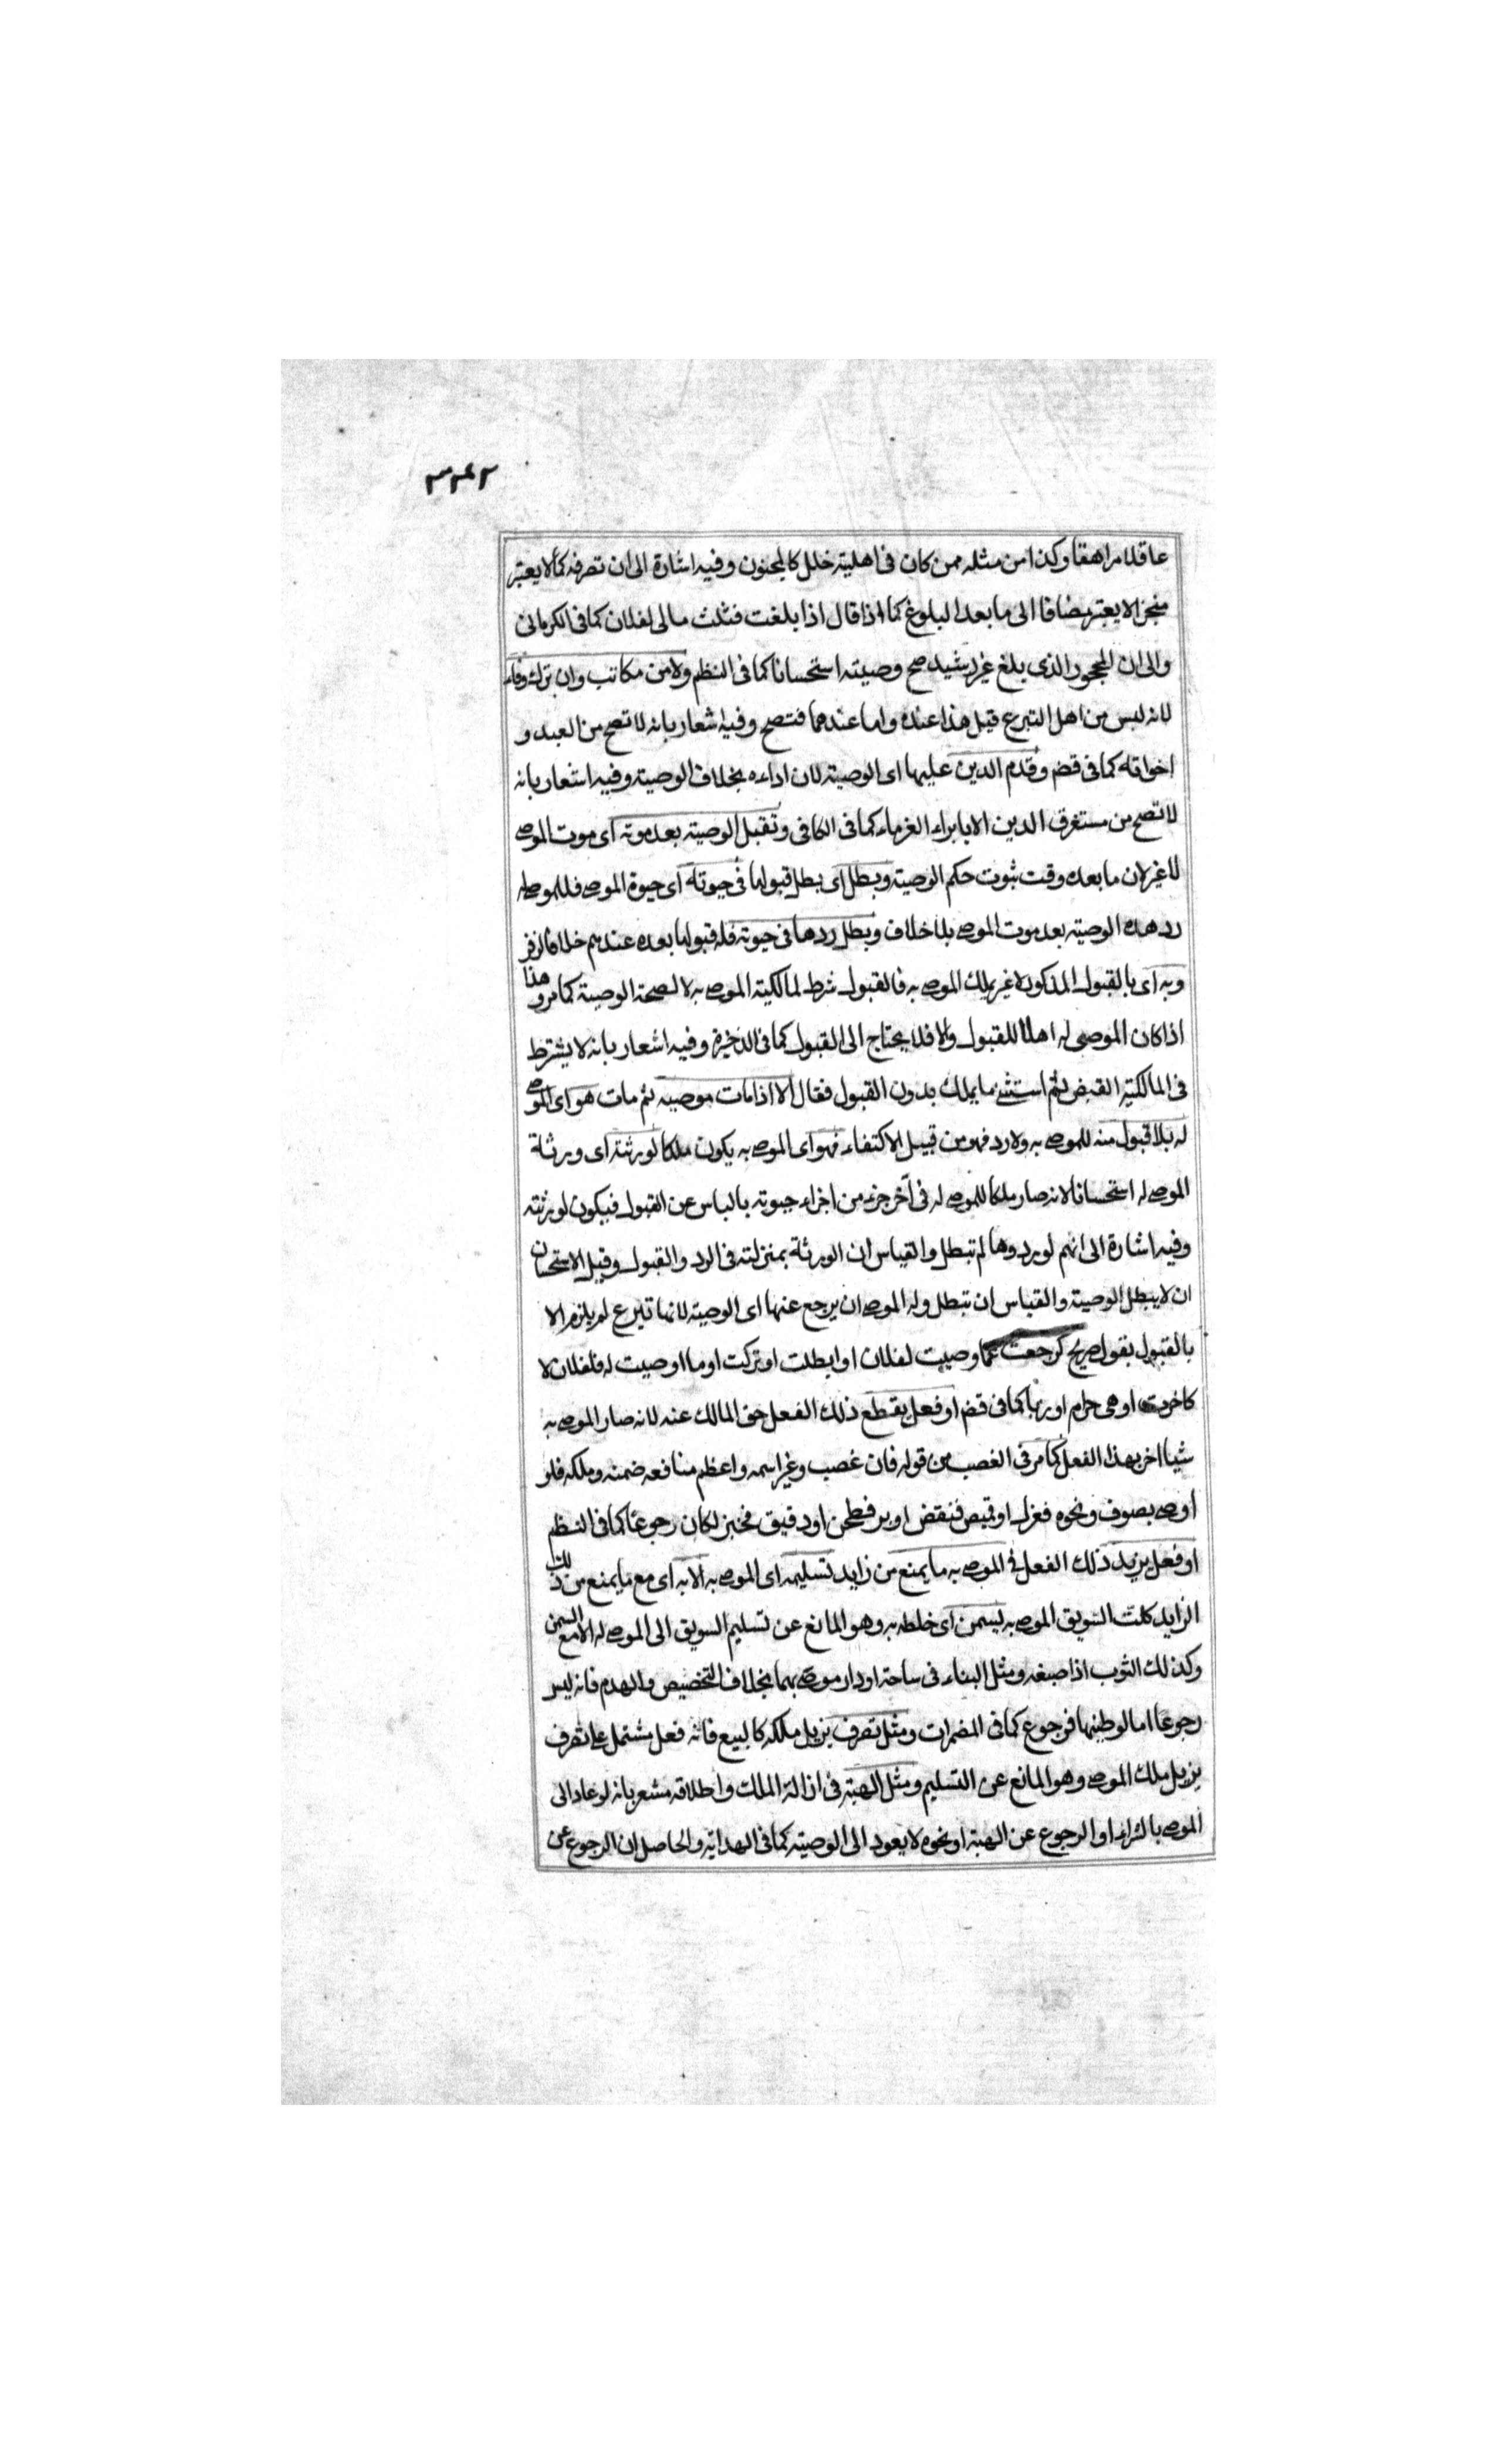 ٣٤٢
عاقلا مراهقا وكذا من مثله ممن كان فى اهليته خلل كالمجنون وفيه اشارة الى ان تصرفه كما لا يعتبر
منجزا لا يعتبر مضافا الى ما بعد البلوغ كما اذا قال اذا بلغت فثلث مالى لفلان كما فى الكرمانى
والى ان المحجور الذى بلغ غير رشيد صح وصيته استحسانا كما فى النظم ولا من مكاتب وان ترك وفاء
لانه ليس من اهل التبرع قيل هذا عنده واما عندهما فتصح وفيه اشعار بانه لا تصح من العبد و
اخواته كما فى قضم وقدم الدين عليها اى الوصية لان اداءه بخلاف الوصية وفيه اشعار بانه
لا تصح من مستغرق الدين الا بابراء الغرماء كما فى الكافى وتقبل الوصية بعد موته اى موت الموصے
لا غير لان ما بعده وقت ثبوت حكم الوصية وبطل اى بطل قبولها فى حيوته اى حيوة الموصے فللموصے له
رد هذه الوصية بعد موت الموصے بلا خلاف وبطل ردها فى حيوته فله قبولها بعده عندهم خلافا لزفر
وبه اى بالقبول المذكور لا غير يملك الموصے به فالقبول شرط لمالكية الموصے به لا لصحة الوصية كما مر وهذا
اذا كان الموصى له اهلا للقبول والا فلا يحتاج الى القبول كما فى الذخيرة وفيه اشعار بانه لا يشترط
فى المالكية القبض ثم استثنے مما يملك بدون القبول فقال الا اذا مات موصيه ثم مات هو اى الموصے
له بلا قبول منه للموصے به ولا رد فهو من قبيل الاكتفاء فهو اى الموصے به يكون ملكا لورثته اى ورثة
الموصے له استحسانا لانه صار ملكا للموصے له فى آخر جزء من اجزاء حيوته بالياس عن القبول فيكون لورثته
وفيه اشارة الى انهم لو ردوها لم تبطل والقياس ان الورثة بمنزلته فى الرد والقبول وقيل الاستحسان
ان لا يبطل الوصية والقياس ان تبطل وله الموصے ان يرجع عنها اى الوصية لانها تبرع لم يلزم الا
بالقبول بقول صريح كرجعت عما اوصيت لفلان او ابطلت او تركت او ما اوصيت له فلفلان لا
كاخرت او هى حرام او ربا كما فى قضم او فعل يقطع ذلك الفعل حق المالك عنه لانه صار الموصے به
شيئا اخر بهذا الفعل كما مر فى الغصب من قوله فان غصب وغير اسمه واعظم منافعه ضمنه وملكه فلو
اوصے بصوف ونحوه فغزل او قميص فنقض او بر فطحن او دقيق فخبز لكان رجوعا كما فى النظم
او فعل يزيد ذلك الفعل فى الموصے به ما يمنع من زايد تسليمه اى الموصے به الا به اى مع ما يمنع من ذلك
الزايد كلت السويق الموصے به بسمن اى خلطه به وهو المانع عن تسليم السويق الى الموصے له الا مع السمن
وكذلك الثوب اذا صبغه ومثل البناء فى ساحة او دار موصے بهما بخلاف التخصيص والهدم فانه ليس
رجوعا اما لو طينها فرجوع كما فى المضمرات ومثل تصرف يزيل ملكه كالبيع فانه فعل مشتمل على تصرف
يزيل ملك الموصے وهو المانع عن التسليم ومثل الهبة فى ازالة الملك واطلاقه مشعر بانه لو عاد الى
الموصے بالشراء او الرجوع عن الهبة او نحوه لا يعود الى الوصية كما فى الهداية والحاصل ان الرجوع عن